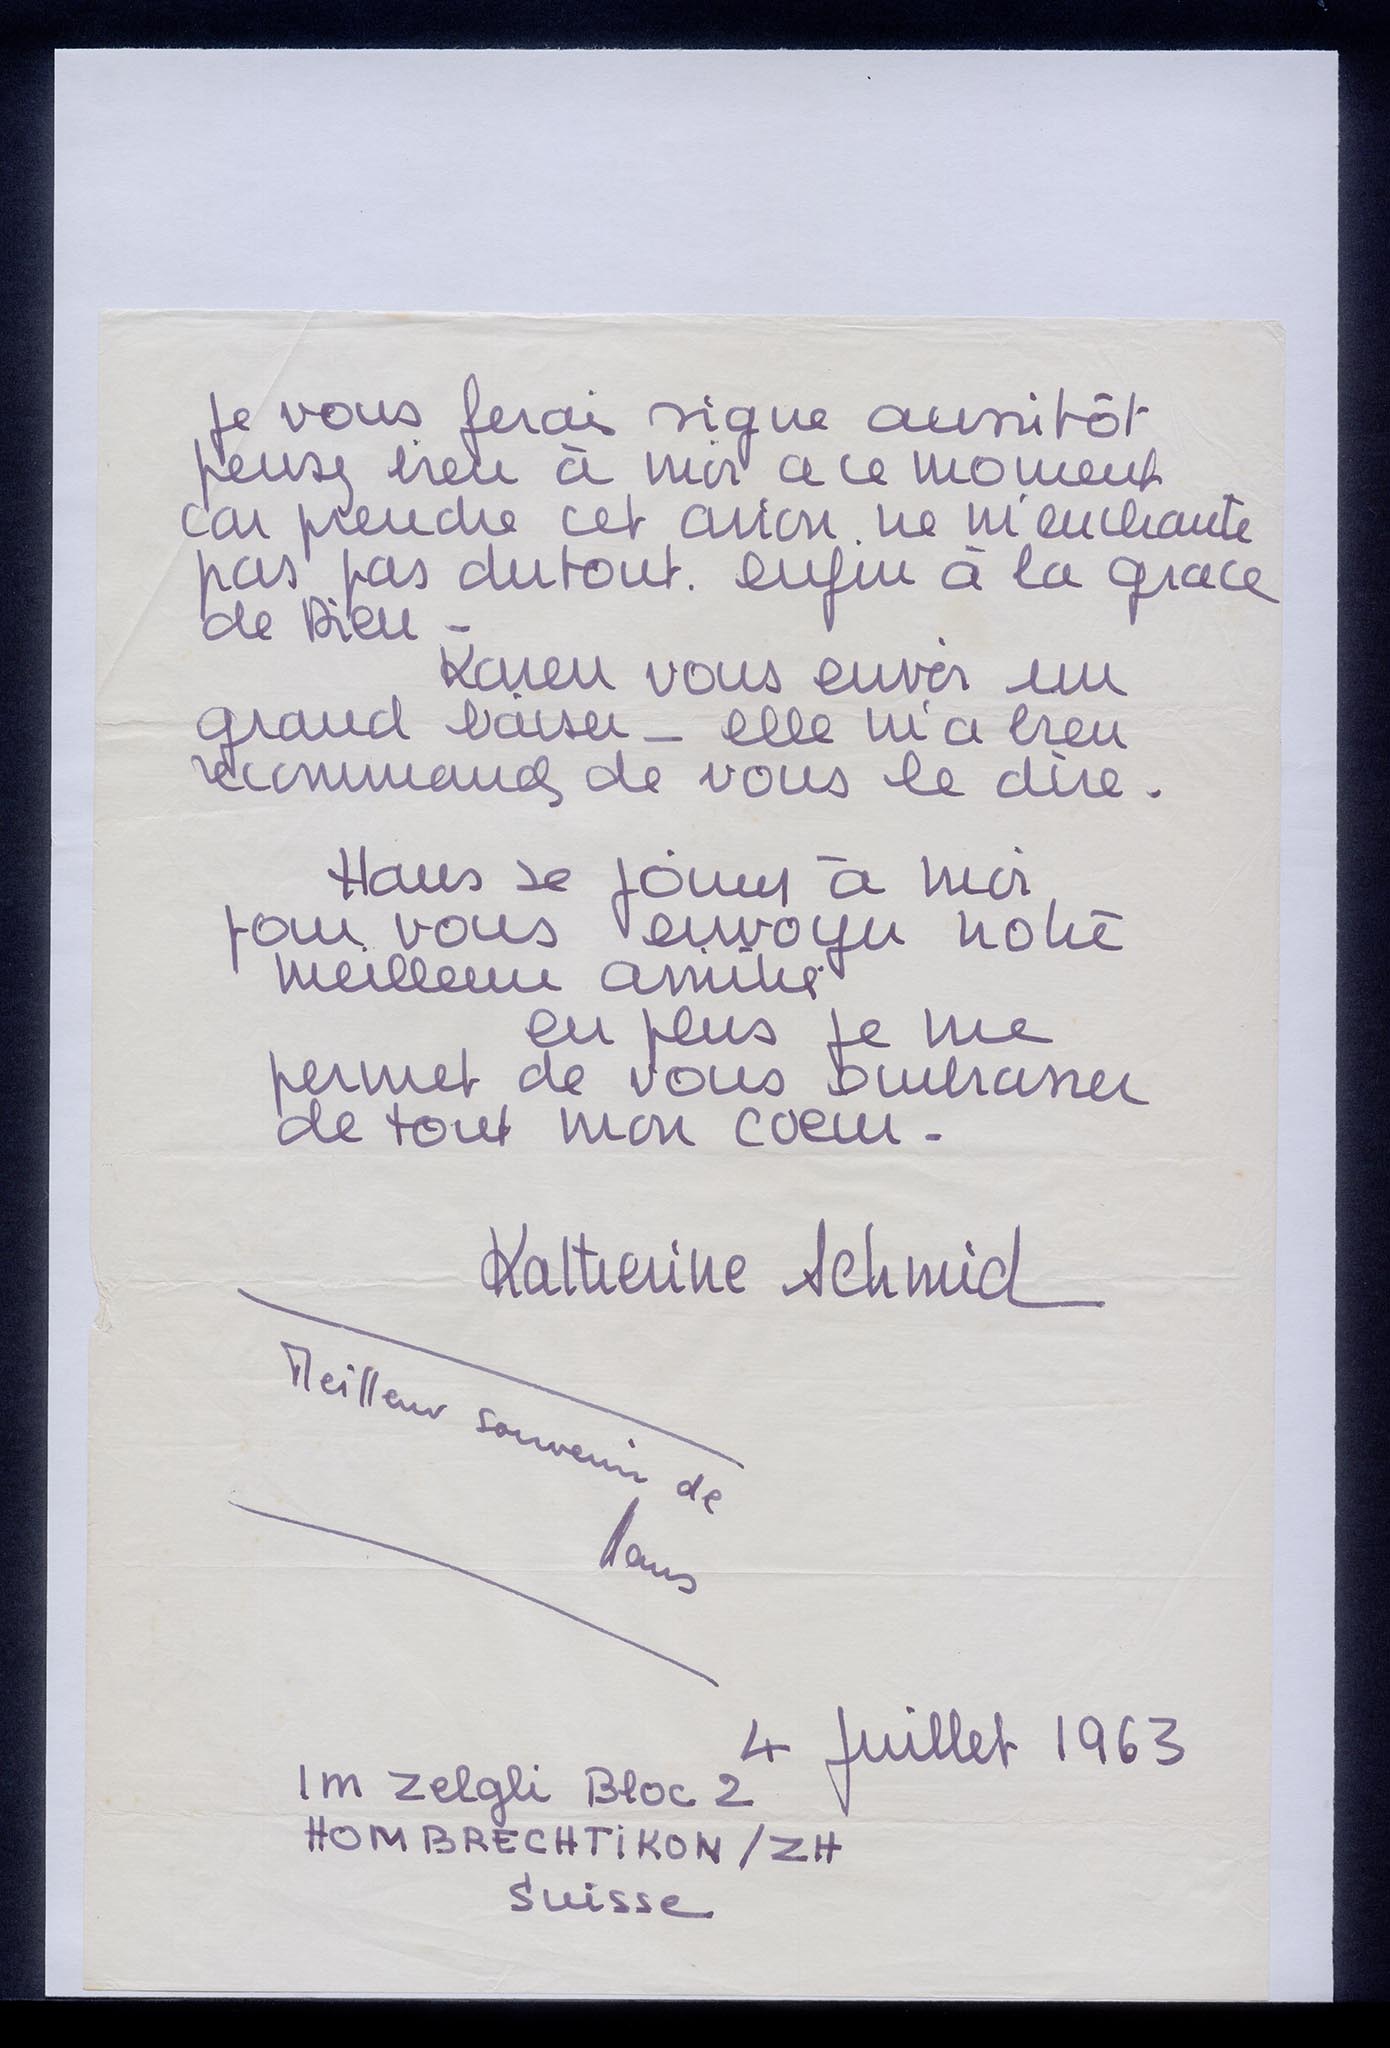 Je vous ferai signe aussitôt
pensez bien à moi a ce moment
car prendre cet avion ne m'enchante
pas pas dutout. enfin à la grace
de Dieu -
Karen vous envoi un
grand baiser - elle m'a bien
recommandé de vous le dire.
Hans se joins à moi
pour vous envoyer notre
meilleure amitié
en plus je me
permet de vous embrasser
de tout mon coeur -
Katherine Schmid
Meilleur souvenir de
Hans
4 Juillet 1963
Im Zelgli Bloc 2
HOMBRECHTIKON/ZH
Suisse